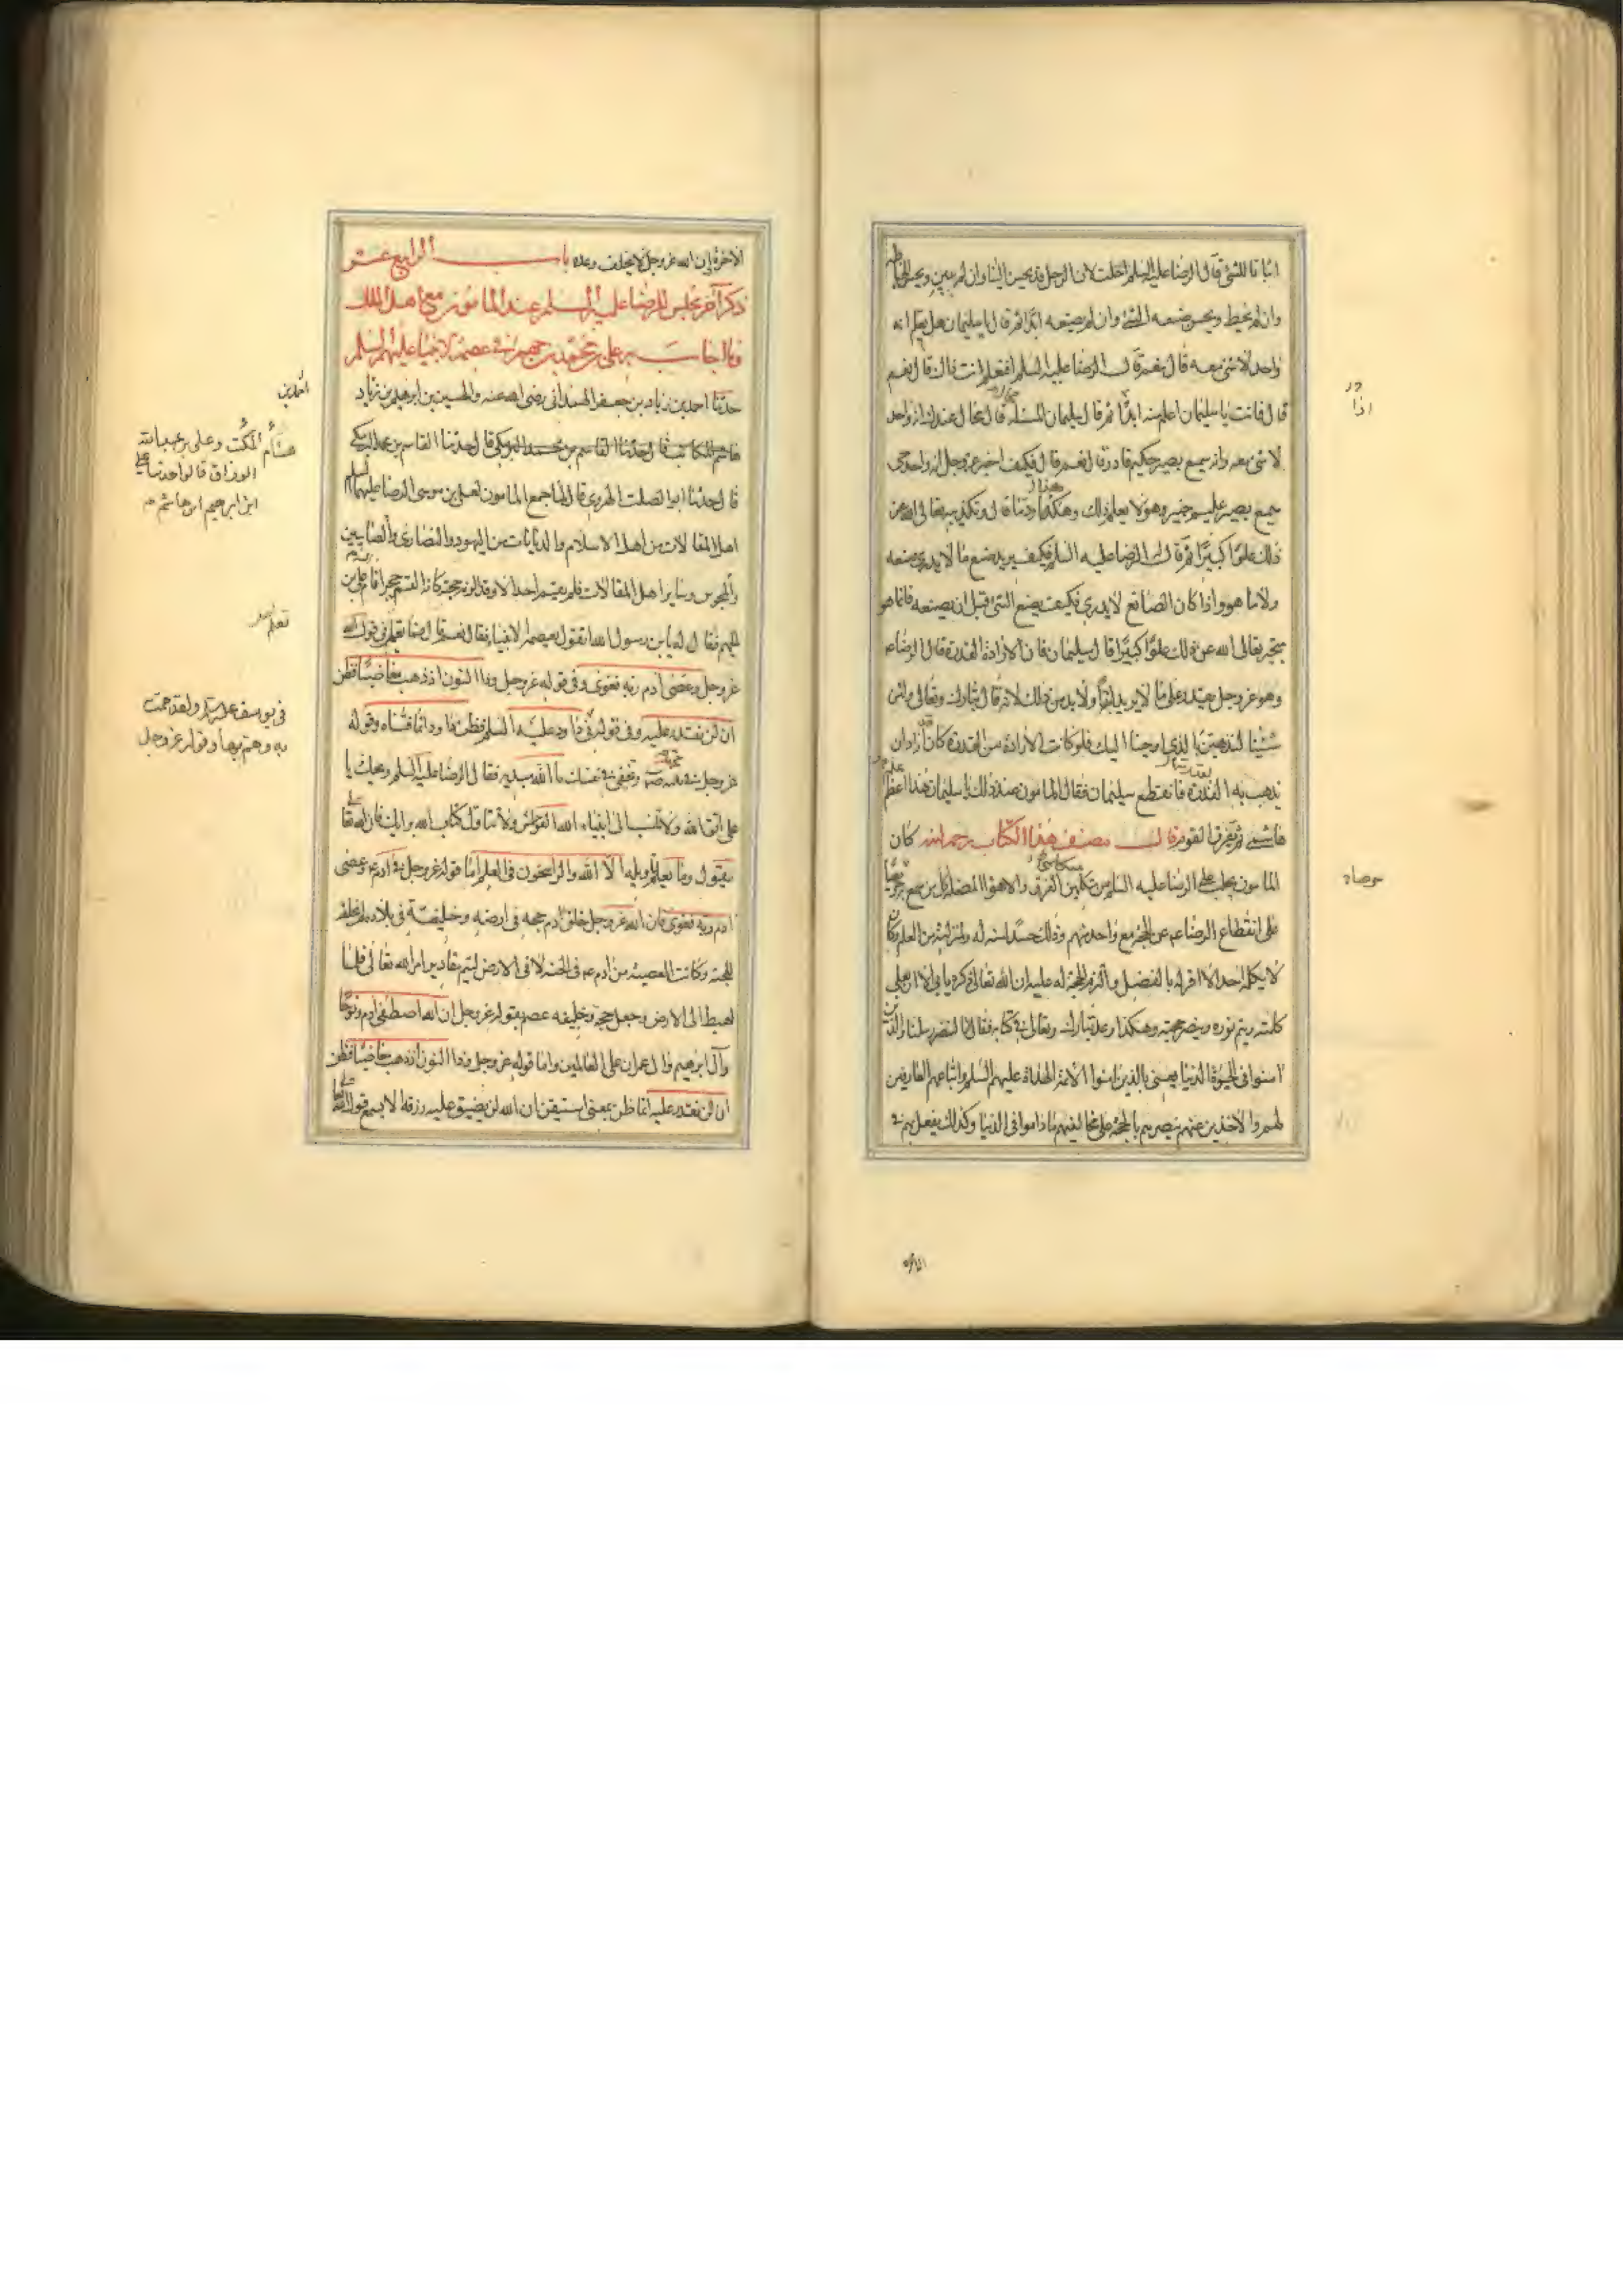 اثباتا للشئ قال الرضا عليه السلم احلت لان الرجل قد يحسن البنا وان لم يبن ويحسن الخياطة
وان لم يخط ويحسن صنعه الشئ وان لم يصنعه ابدا ثم قال يا سليمان هل يعلم انه
واحد لا شئ معه قال نعم قال الرضا عليه السلم افيعلم انت ذاك قال نعم
قال فانت يا سليمان اعلم منه اذا ثم قال سليمان المسئلة محال قال محال عندك انه واحد
لا شئ معه وانه سميع بصير حكيم قادر قال نعم قال فكيف اخبر عز وجل انه واحد حى
سميع بصير عليم خبير وهو لا يعلم ذلك وهكذا رد ما قال وتكذيبه تعالى الله عن
ذلك علوا كبيرا ثم قال الرضا عليه السلم فكيف يريد صنع ما لا يدرى صنعه
ولا ما هو واذا كان الصانع لا يدرى كيف يصنع الشئ قبل ان يصنعه فانما هو
متحير تعالى الله عن ذلك علوا كبيرا قال سليمان فان الارادة القدرة قال الرضا ع
وهو عز وجل يقدر على ما لا يريد ابدا ولا بد من ذلك لانه قال تبارك وتعالى ولئن
شئنا لنذهبن بالذى اوحينا اليك فلو كانت الارادة هى القدرة كان قد اراد ان
يذهب به لقدرته فانقطع سليمان فقال المامون عند ذلك يا سليمان هذا اعلم
هاشمى ثم تفرق القوم قال مصنف هذا الكتاب رحمه الله كان
المامون يجلب على الرضا عليه السلم من متكلمى الفرق والاهواء المضلة كل من سمع به حرصا
على انقطاع الرضا ع عن الحجة مع واحد منهم وذلك حسدا منه له ولمنزلته من العلم وكان
لا يكلمه احد الا اقر له بالفضل والتزم الحجة له عليه ان الله تعالى ذكره يابى الا ان يعلى
كلمته ويتم نوره وينصر حجته وهكذا وعد تبارك وتعالى فى كتابه فقال انا لننصر رسلنا والذين
امنوا فى الحيوة الدنيا يعنى بالذين امنوا الائمة الهداة عليهم السلم واتباعهم العارفين
لهم والاخذين عنهم ينصرهم بالحجة على مخالفيهم ما داموا فى الدنيا وكذلك يفعل بهم فى
الاخرة ان الله عز وجل لا يخلف وعده باب الرابع عشر
ذكر آخر مجلس للرضا عليه السلم عند المامون مع اهل الملل
وما اجاب به على بن محمد بن جهم فى عصمة الانبيا عليهم السلم
حدثنا احمد بن زياد بن جعفر الهمدانى رضى الله عنه والحسين بن ابرهيم بن
هاشم المكاتب قال حدثنا القاسم بن محمد البرمكى قال حدثنا القاسم بن محمد البرمكى
قال حدثنا ابو الصلت الهروى قال لما جمع المامون لعلى بن موسى الرضا عليهما السلم
اهل المقالات من اهل الاسلام والديانات من اليهود والنصارى والصابيين
والمجوس وساير اهل المقالات فلم يقم احد الا وقد الزمه حجته كانه القم حجرا قام على بن
الجهم فقال له يابن رسول الله اتقول بعصمة الانبياء فقال نعم قال فما تعلم فى قول الله
عز وجل وعصى ادم ربه فغوى وفى قوله عز وجل وذا النون اذ ذهب مغاضبا فظن
ان لن نقدر عليه وفى قوله فى داود عليه السلم فظن داود انما فتناه وقوله
عز وجل فى محمد ص وتخفى فى نفسك ما الله مبديه فقال الرضا عليه السلم ويحك يا
على اتق الله ولا تنسب الى انبياء الله الفواحش ولا تتاول كتاب الله برايك فان الله تعالى
يقول وما يعلم تاويله الا الله والراسخون فى العلم اما قوله عز وجل فى ادم ع وعصى
ادم ربه فغوى فان الله عز وجل خلق ادم حجه فى ارضه وخليفة فى بلاده لم يخلقه
للجنة وكانت المعصية من ادم ع فى الجنة لا فى الارض ليتم مقادير امر الله تعالى فلما
اهبط الى الارض وجعل حجة وخليفه عصم بقوله عز وجل ان الله اصطفى ادم ونوحا
وآل ابرهيم وال عمران على العالمين واما قوله عز وجل وذا النون اذ ذهب مغاضبا فظن
ان لن نقدر عليه انما ظن بمعنى استيقن ان الله لن يضيق عليه رزقه الا يسمع قول الله
هشام المكتب وعلى بن عبد الله
الوراق قالوا حدثنا على
ابن ابرهيم ابن هاشم
فى يوسف عليه السلام ولقد همت
به وهم بها وقوله عز وجل